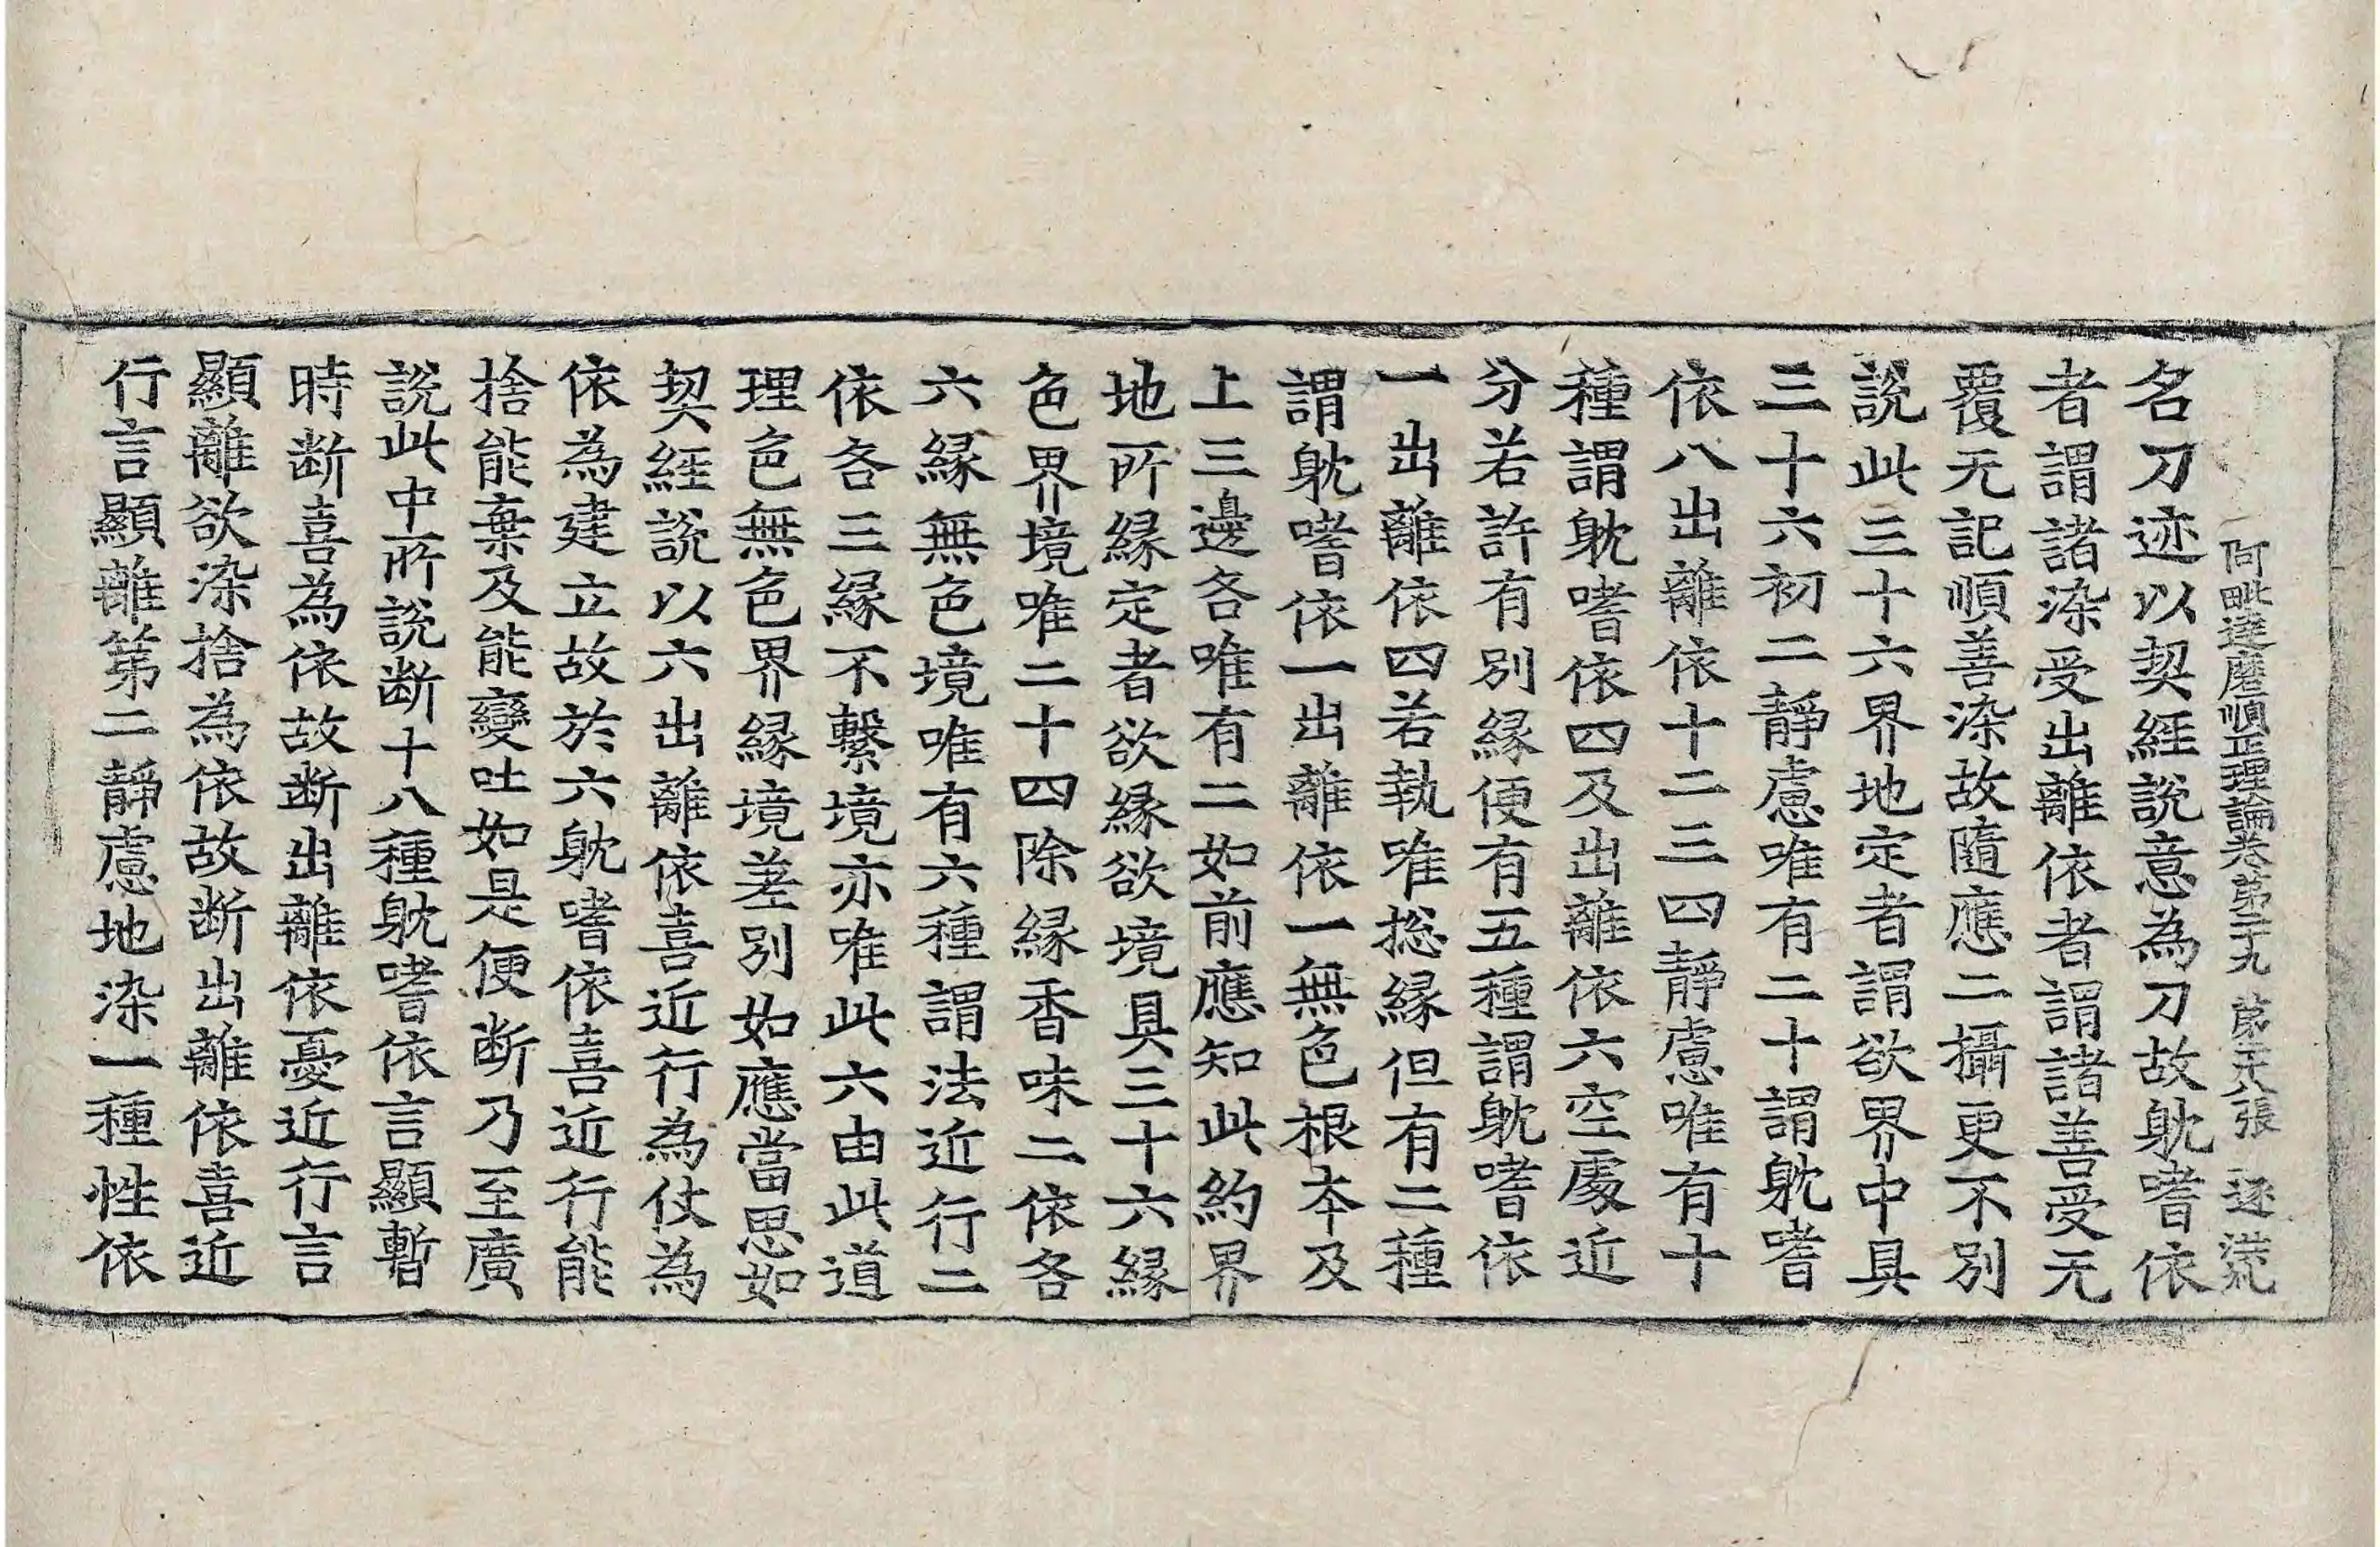 阿毗達磨順正理論卷第二十九 第二十八張 逐 淲
名刀迹以契經說意為刀故躭嗜依
者謂諸染受出離依者謂諸善受无
覆无記順善染故隨應二攝更不別
說此三十六界地定者謂欲界中具
三十六初二靜慮唯有二十謂躭嗜
依八出離依十二三四靜慮唯有十
種謂躭嗜依四及出離依六空處近
分若許有別緣便有五種謂躭嗜依
一出離依四若執唯揔緣但有二種
謂躭嗜依一出離依一無色根本及
上三邊各唯有二如前應知此約界
地所緣定者欲緣欲境具三十六緣
色界境唯二十四除緣香味二依各
六緣無色境唯有六種謂法近行二
依各三緣不繫境亦唯此六由此道
理色無色界緣境差別如應當思如
契經說以六出離依喜近行為仗為
依為建立故於六躭嗜依喜近行能
捨能棄及能變吐如是便断乃至廣
說此中所說断十八種躭嗜依言顯暫
時断喜為依故断出離依憂近行言
顯離欲染捨為依故断出離依喜近
行言顯離第二靜慮地染一種性依